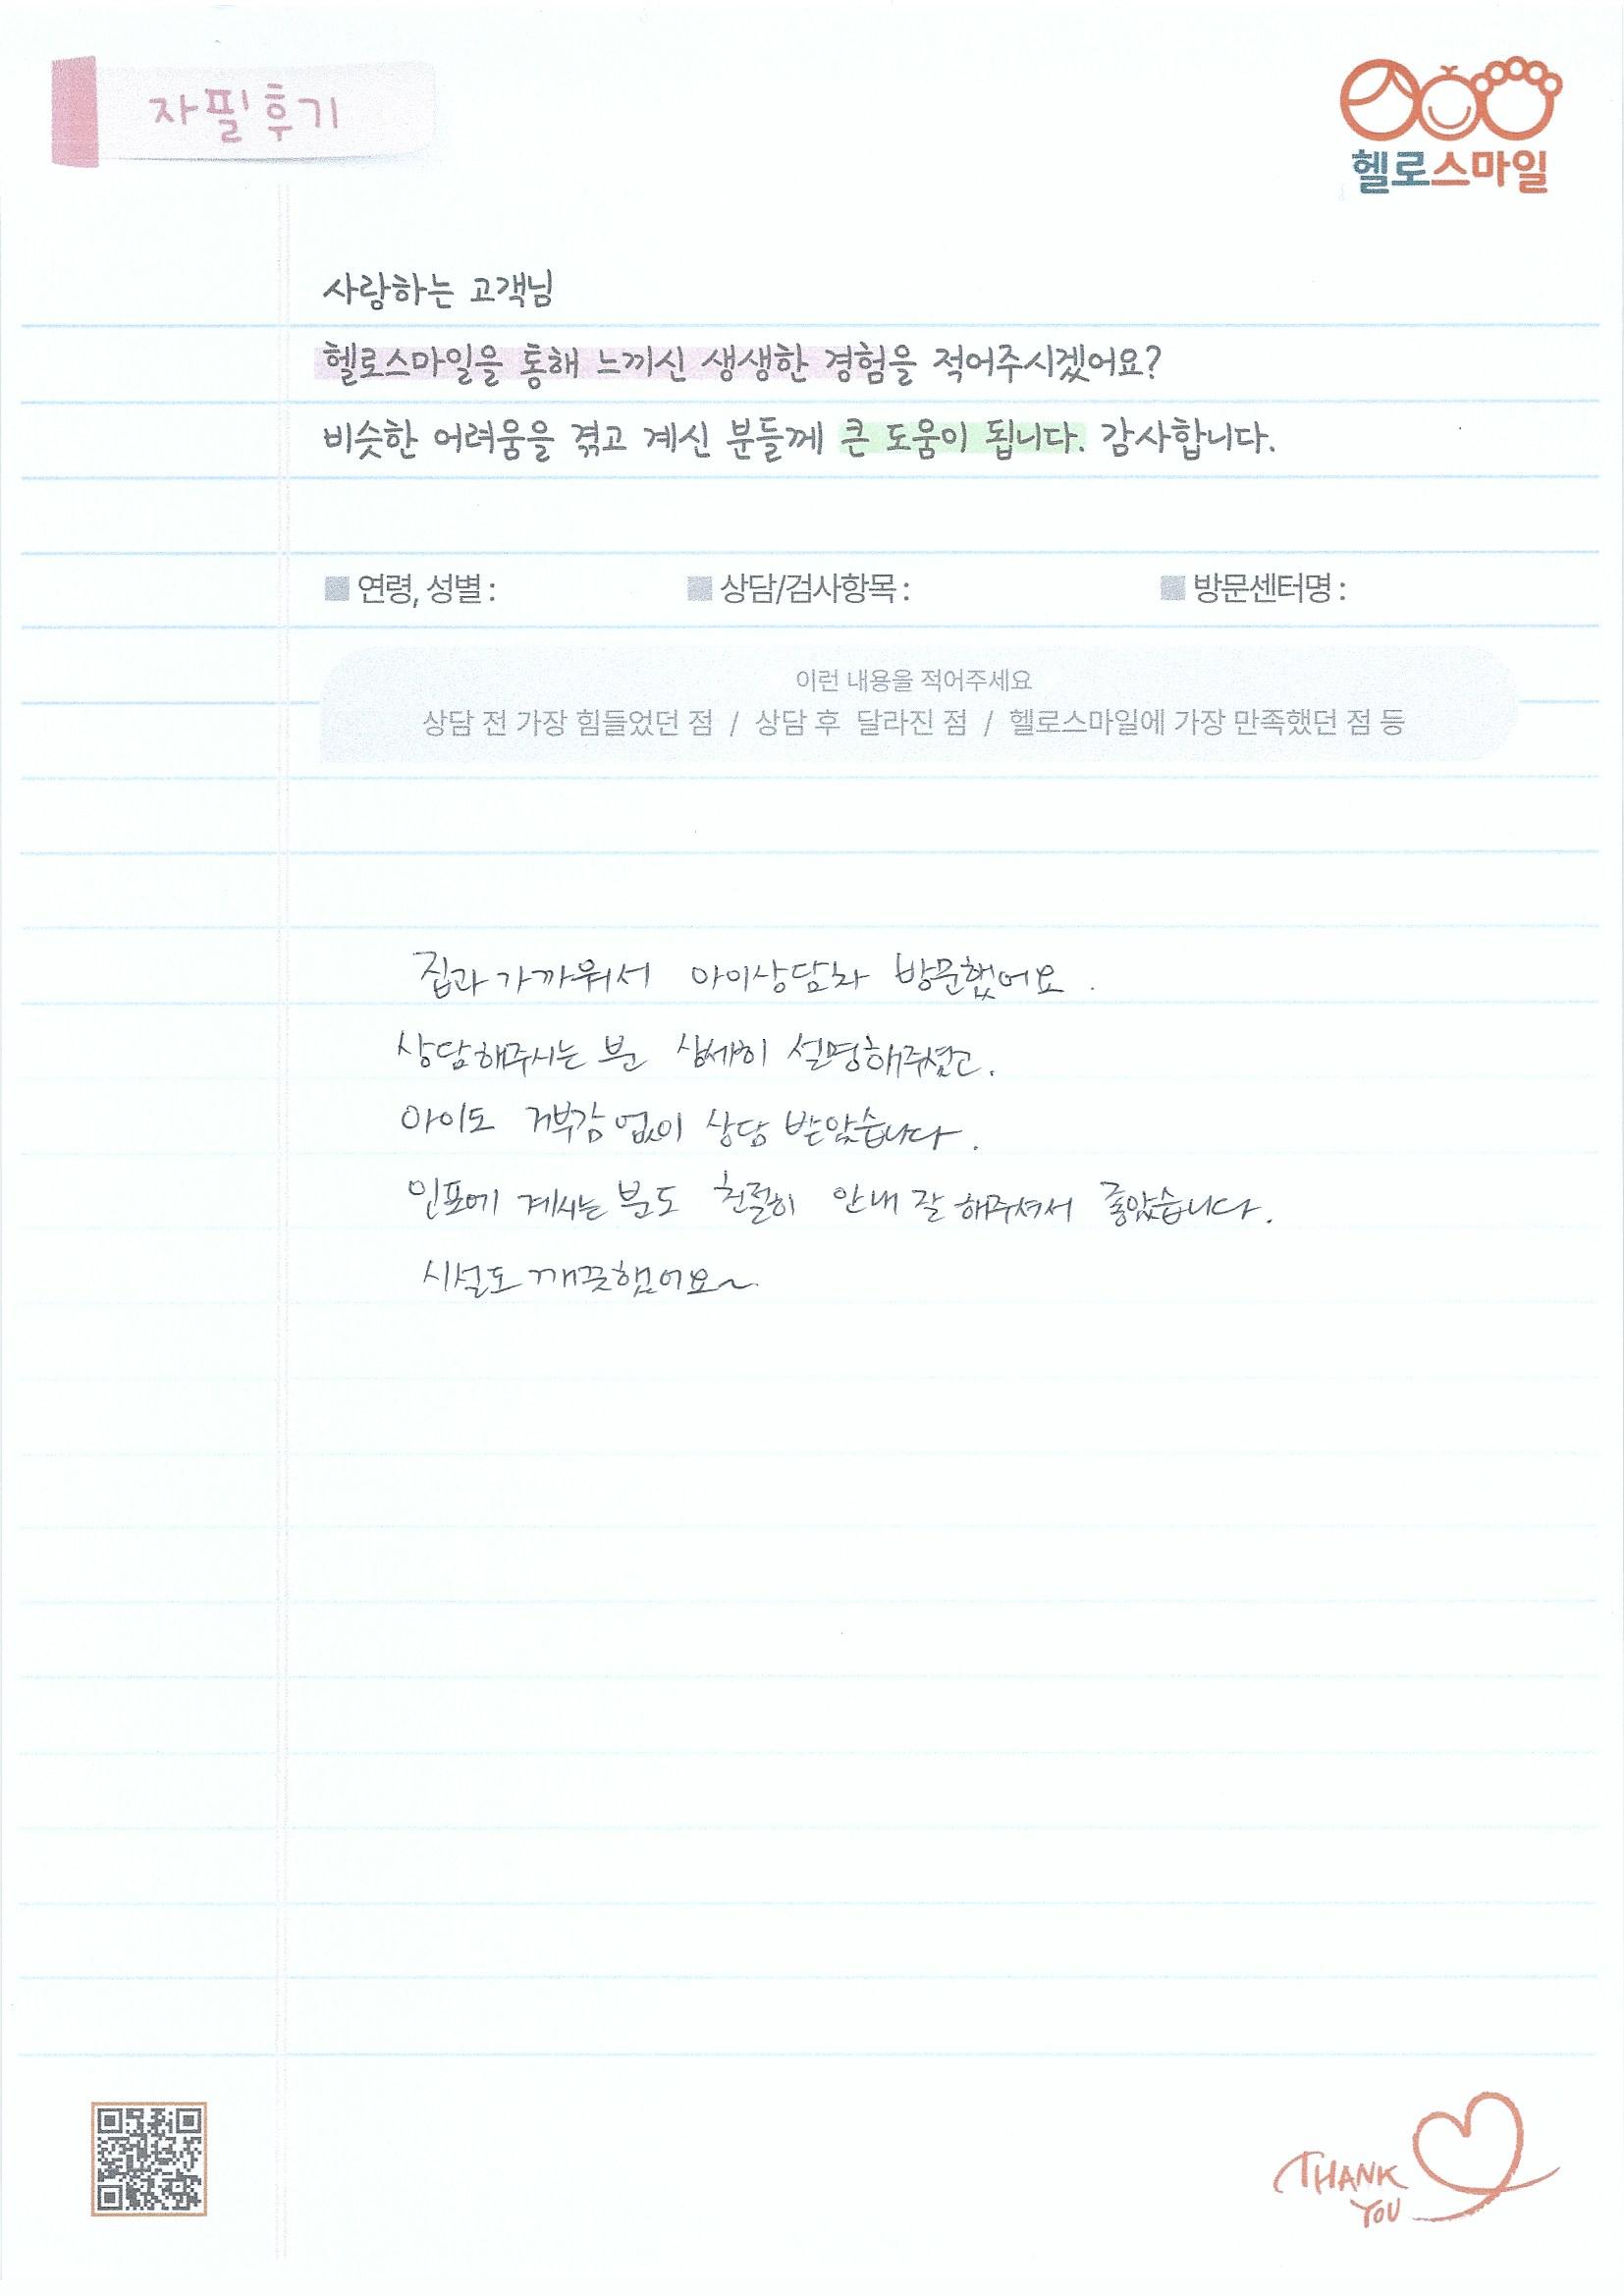 자필후기
헬로스마일
사랑하는 고객님
헬로스마일을 통해 느끼신 생생한 경험을 적어주시겠어요?
비슷한 어려움을 겪고 계신 분들께 큰 도움이 됩니다. 감사합니다.
■ 연령, 성별 : ■ 상담/검사항목 : ■ 방문센터명 :
이런 내용을 적어주세요
상담 전 가장 힘들었던 점 / 상담 후 달라진 점 / 헬로스마일에 가장 만족했던 점 등
집과 가까워서 아이상담차 방문했어요.
상담해주시는 분 상세히 설명해주셨고.
아이도 거부감 없이 상담 받았습니다.
인포에 계시는 분도 친절히 안내 잘 해주셔서 좋았습니다.
시설도 깨끗했어요~
THANK
YOU